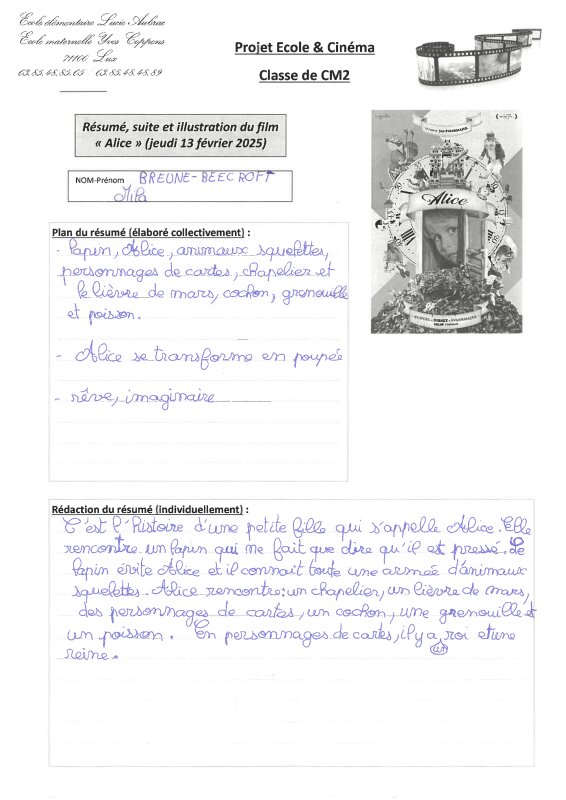 Ecole élémentaire Lucie Aubrac
Ecole maternelle Yves Coppens
71100 Lux
03.85.48.85.03 03.85.48.48.89
Projet Ecole & Cinéma
Classe de CM2
Résumé, suite et illustration du film
« Alice » (jeudi 13 février 2025)
NOM-Prénom BREUNE-BEECROFT
Mila
Alice
Plan du résumé (élaboré collectivement) :
- Lapin, Alice, animaux squelettes,
personnages de cartes, chapelier et
le lièvre de mars, cochon, grenouille
et poisson.
- Alice se transforme en poupée
- rêve, imaginaire
Rédaction du résumé (individuellement) :
C'est l'histoire d'une petite fille qui s'appelle Alice. Elle
rencontre un lapin qui ne fait que dire qu'il est pressé. Le
lapin évite Alice et il connait toute une armée d'animaux
squelettes. Alice rencontre: un chapelier, un lièvre de mars,
des personnages de cartes, un cochon, une grenouille et
un poisson. En personnages de cartes, il y a un roi et une
reine.